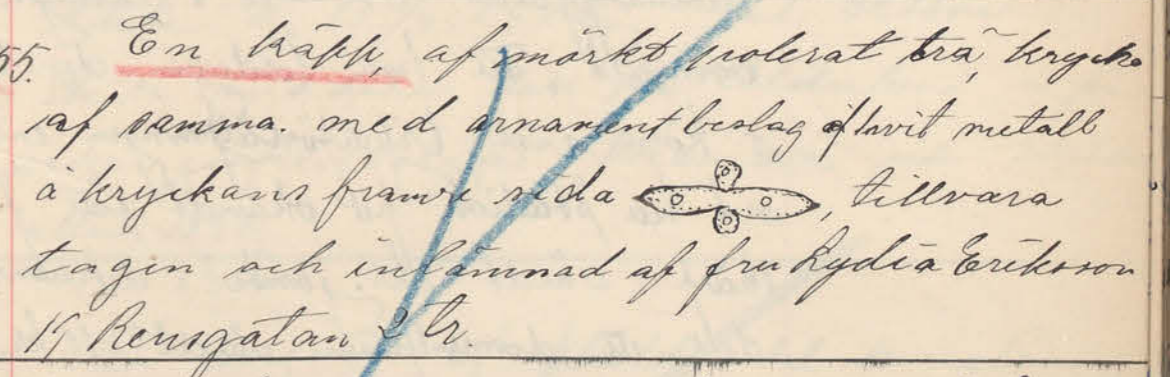 55. En käpp, af mörkt polerat trä, krycka
af samma. med ornament beslag af hvit metall
å kryckans främre sida, tillvara
tagen och inlämnad af fru Lydia Eriksson
19 Rensgatan 2 tr.